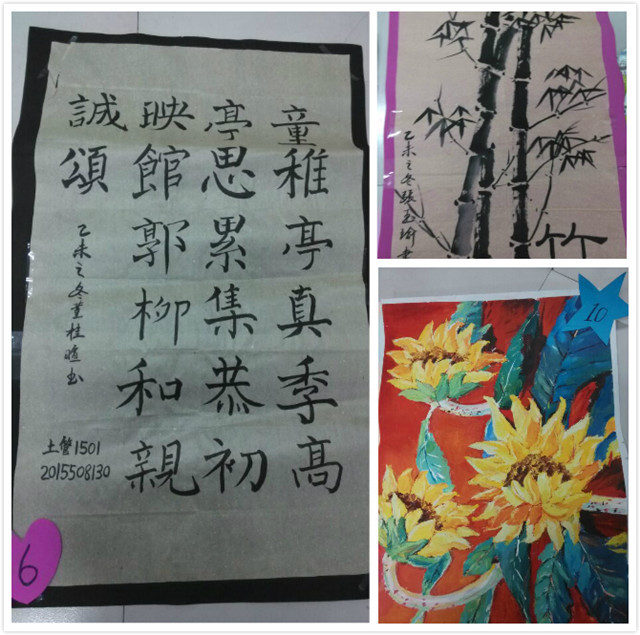 童稚亭真季高
亭思累集恭初
映館郭柳和親
誠頌
乙未之冬董桂书
土管1501
2015508130
6
乙未之冬張玉
竹
10